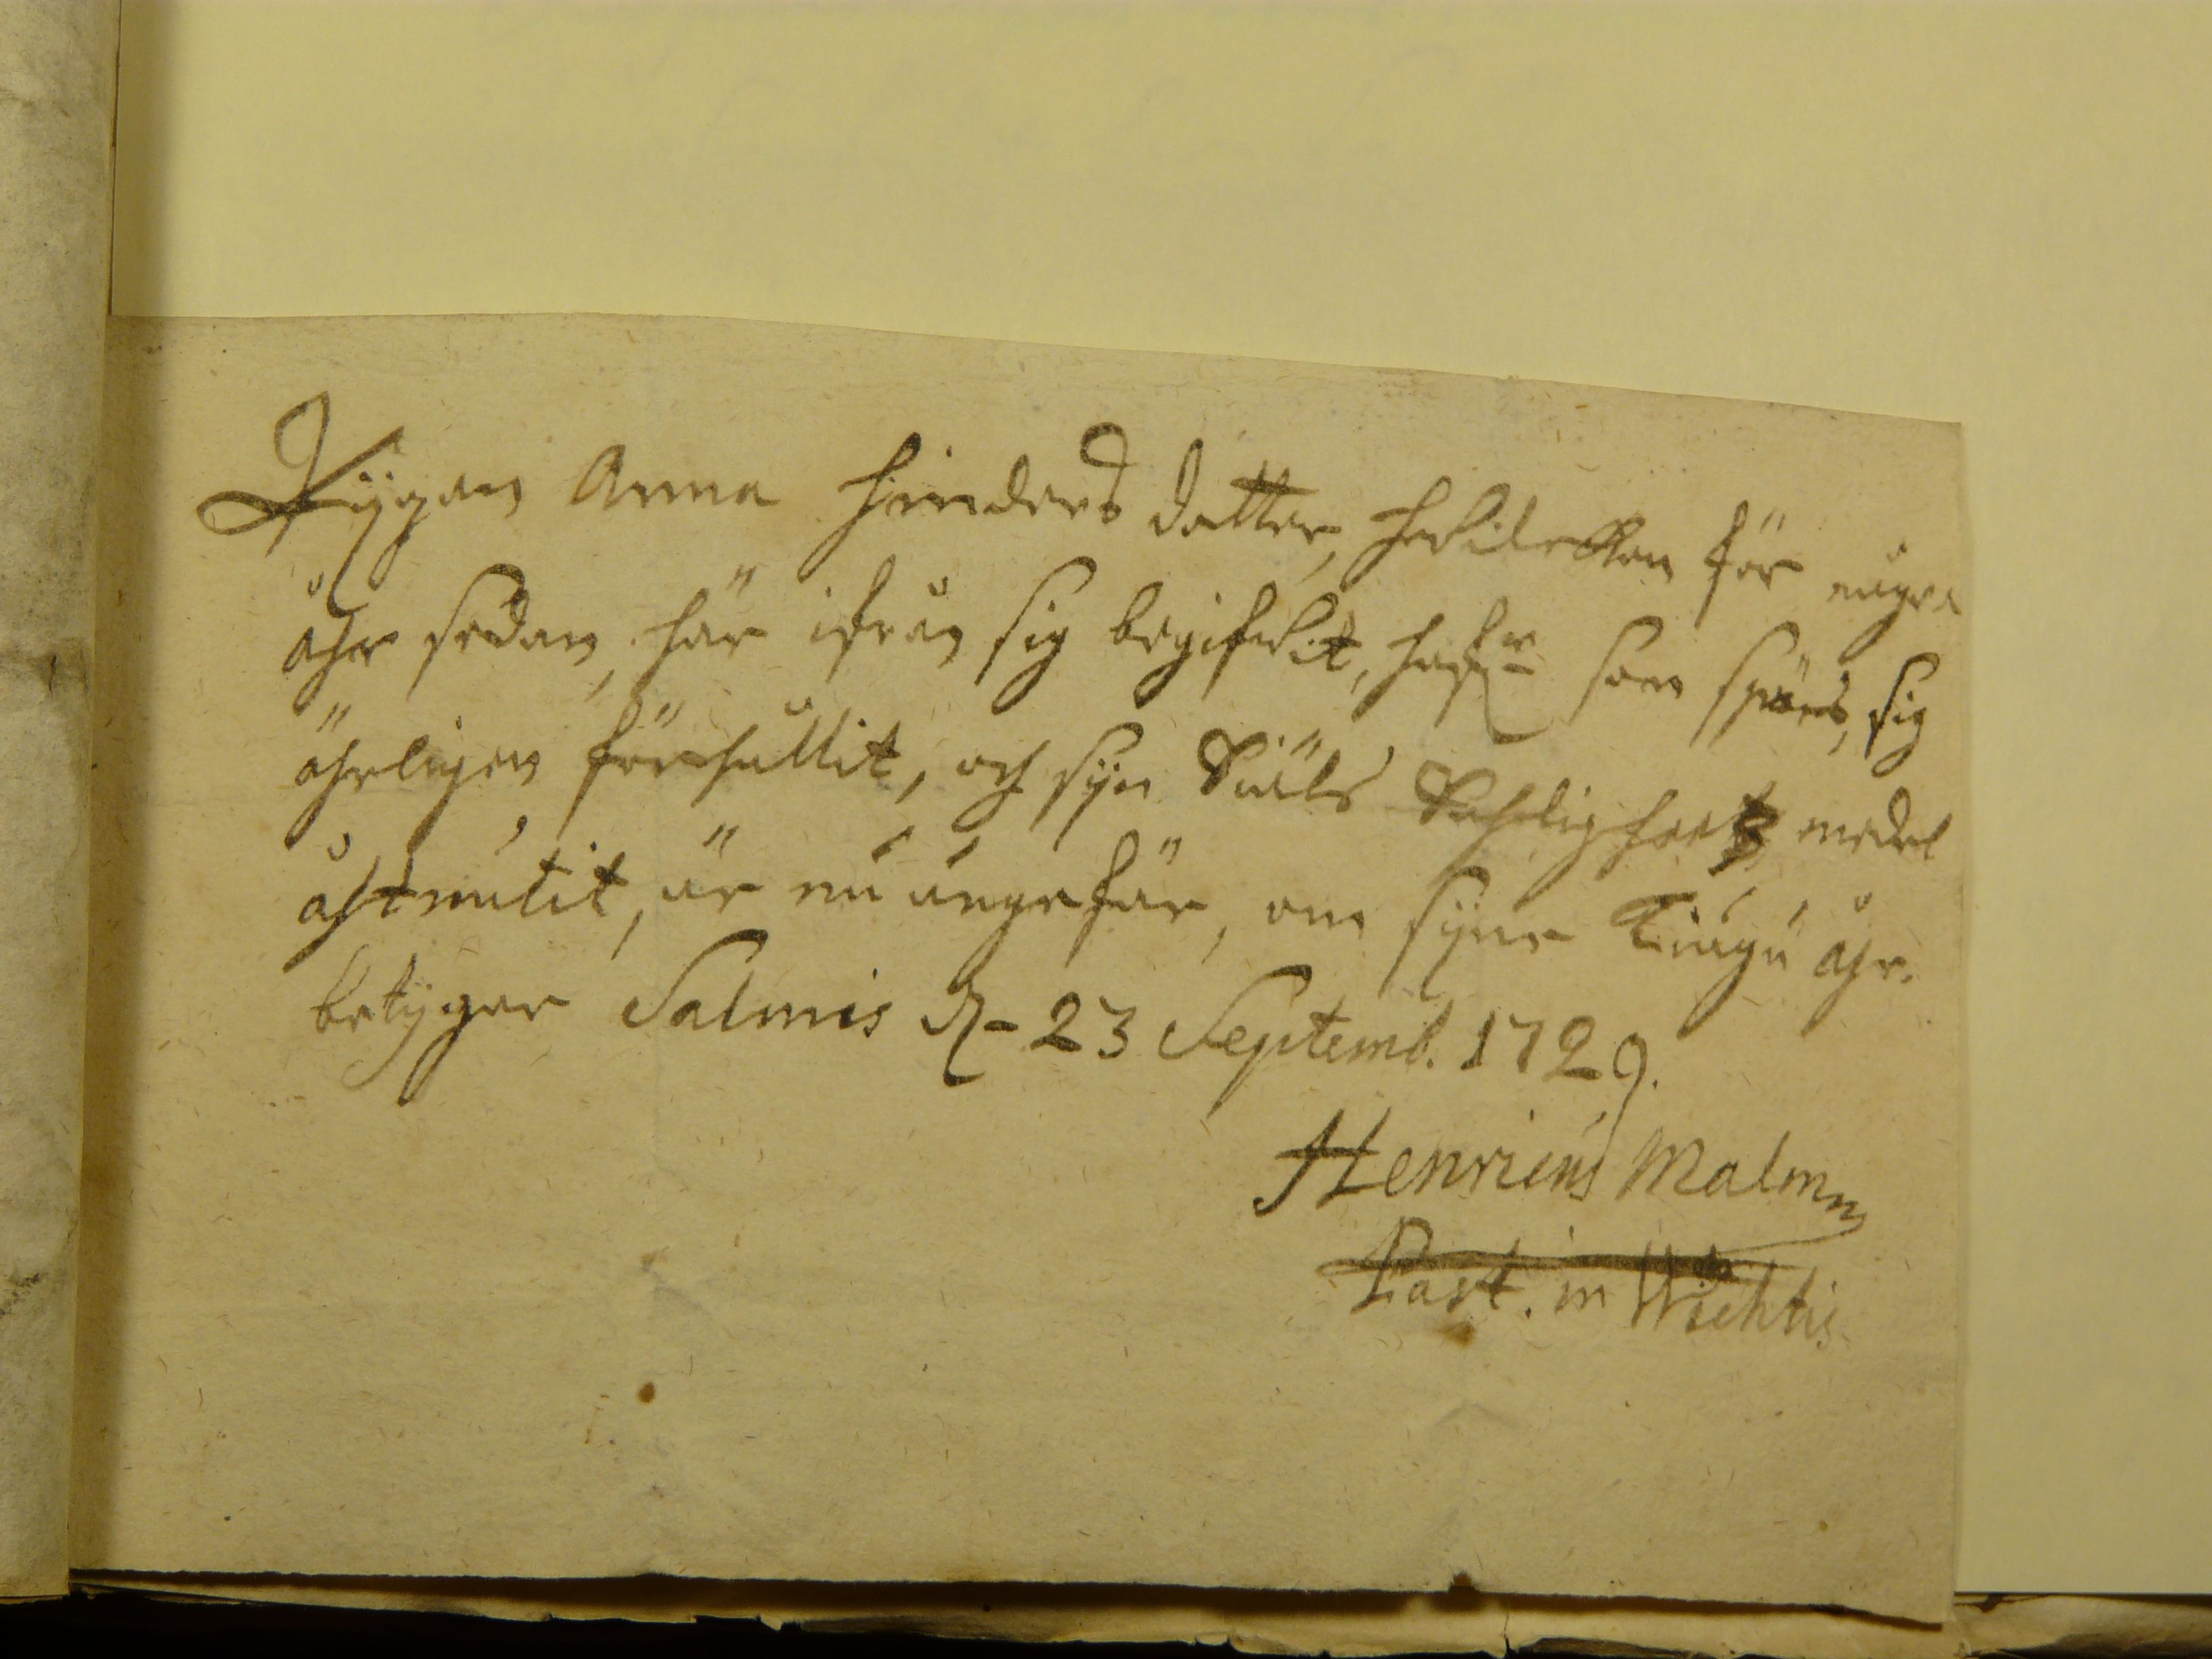 Pijgan Anna Hinders dotter, hwilcken för någre
åhr sedan, här ifrån sig begifwit, hafr som spörs, sig
ährligen förhållit, och sijn Siäls Sahligheetz medel
åstnutit, är nu ungefär, om sijne tiugu åhr.
betygar Salmis d. 23 Septemb. 1729.
Henricus Malmn
Past. in Wichtis